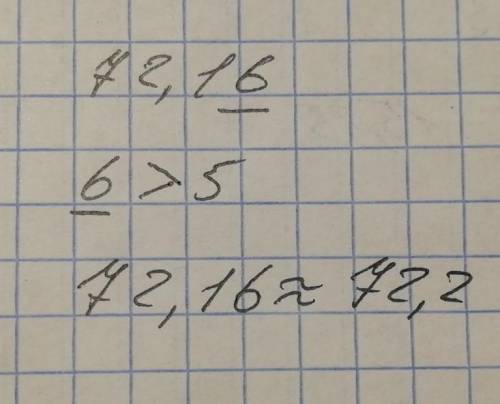 72,16
6 > 5
72,16 ≈ 72,2